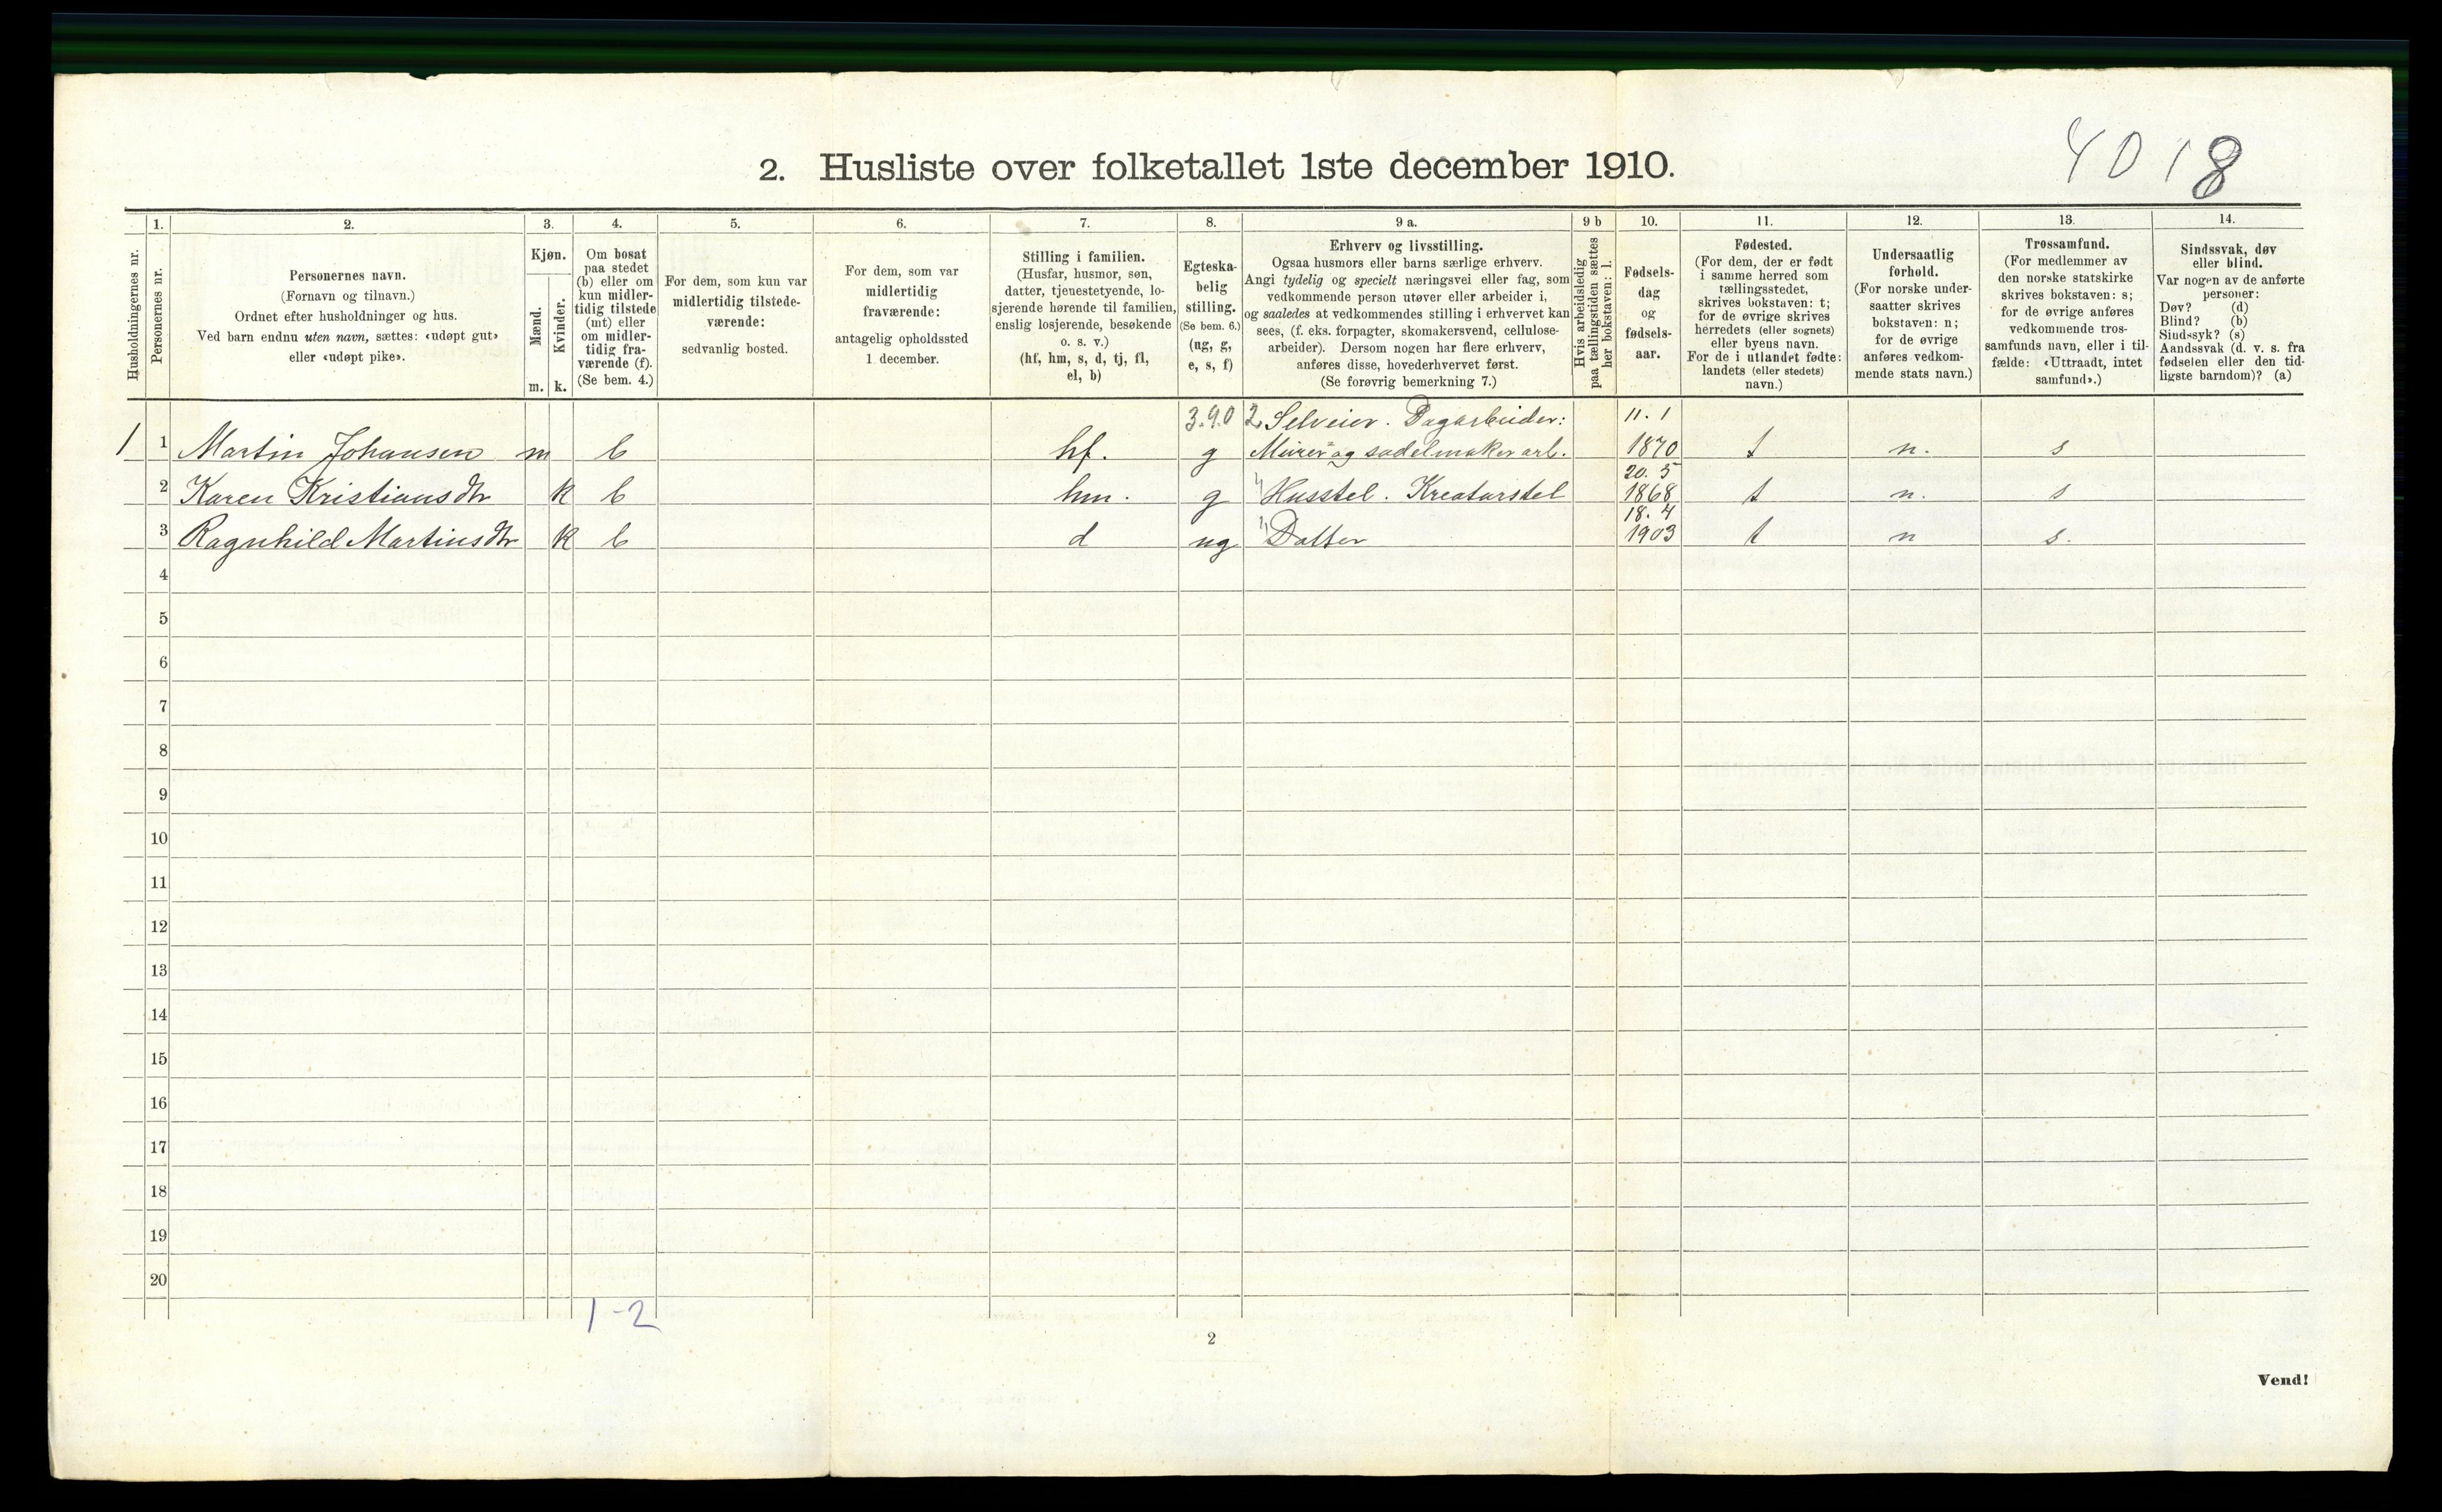 4018
2. Husliste over folketallet 1ste december 1910.
Husholdningernes nr.
1.
Personernes nr.
2.
Personernes navn.
(Fornavn og tilnavn.)
Ordnet efter husholdninger og hus.
Ved barn endnu uten navn, sættes: «udøpt gut»
eller «udøpt pike».
3.
Kjøn.
Mænd.
m.
Kvinder.
k.
4.
Om bosat
paa stedet
(b) eller om
kun midler-
tidig tilstede
(mt) eller
om midler-
tidig fra-
værende (f).
(Se bem. 4.)
5.
For dem, som kun var
midlertidig tilstede-
værende:
sedvanlig bosted.
6.
For dem, som var
midlertidig
fraværende:
antagelig opholdssted
1 december.
7.
Stilling i familien.
(Husfar, husmor, søn,
datter, tjenestetyende, lo-
sjerende hørende til familien,
enslig losjerende, besøkende
o. s. v.)
(hf, hm, s, d, tj, fl,
el, b)
8.
Egteska-
belig
stilling.
(Se bem. 6.)
(ug, g,
e, s, f)
9 a.
Erhverv og livsstilling.
Ogsaa husmors eller barns særlige erhverv.
Angi tydelig og specielt næringsvei eller fag, som
vedkommende person utøver eller arbeider i,
og saaledes at vedkommendes stilling i erhvervet kan
sees, (f. eks. forpagter, skomakersvend, cellulose-
arbeider). Dersom nogen har flere erhverv,
anføres disse, hovederhvervet først.
(Se forøvrig bemerkning 7.)
9 b
Hvis arbeidsledig
paa tællingstiden sættes
her bokstaven: l.
10.
Fødsels-
dag
og
fødsels-
aar.
11.
Fødested.
(For dem, der er født
i samme herred som
tællingsstedet,
skrives bokstaven: t;
for de øvrige skrives
herredets (eller sognets)
eller byens navn.
For de i utlandet fødte:
landets (eller stedets)
navn.)
12.
Undersaatlig
forhold.
(For norske under-
saatter skrives
bokstaven: n;
for de øvrige
anføres vedkom-
mende stats navn.)
13.
Trossamfund.
(For medlemmer av
den norske statskirke
skrives bokstaven: s;
for de øvrige anføres
vedkommende tros-
samfunds navn, eller i til-
fælde: «Uttraadt, intet
samfund».)
14.
Sindssvak, døv
eller blind.
Var nogen av de anførte
personer:
Døv? (d)
Blind? (b)
Sindssyk? (s)
Aandssvak (d. v. s. fra
fødselen eller den tid-
ligste barndom)? (a)
3.9.0 2 Selveier. Dagarbeider: 11. 1
1 1 Martin Johansen m b hf. g Murer og sadelmaker arb. 1870 t n. s
20. 5
2 Karen Kristiansdtr k b hm. g Husstel. Kreaturstel 1868 t n. s
18. 4
3 Ragnhild Martinsdtr k b d ug Datter 1903 t n s.
4
5
6
7
8
9
10
11
12
13
14
15
16
17
18
19
20
1-2
2
Vend!